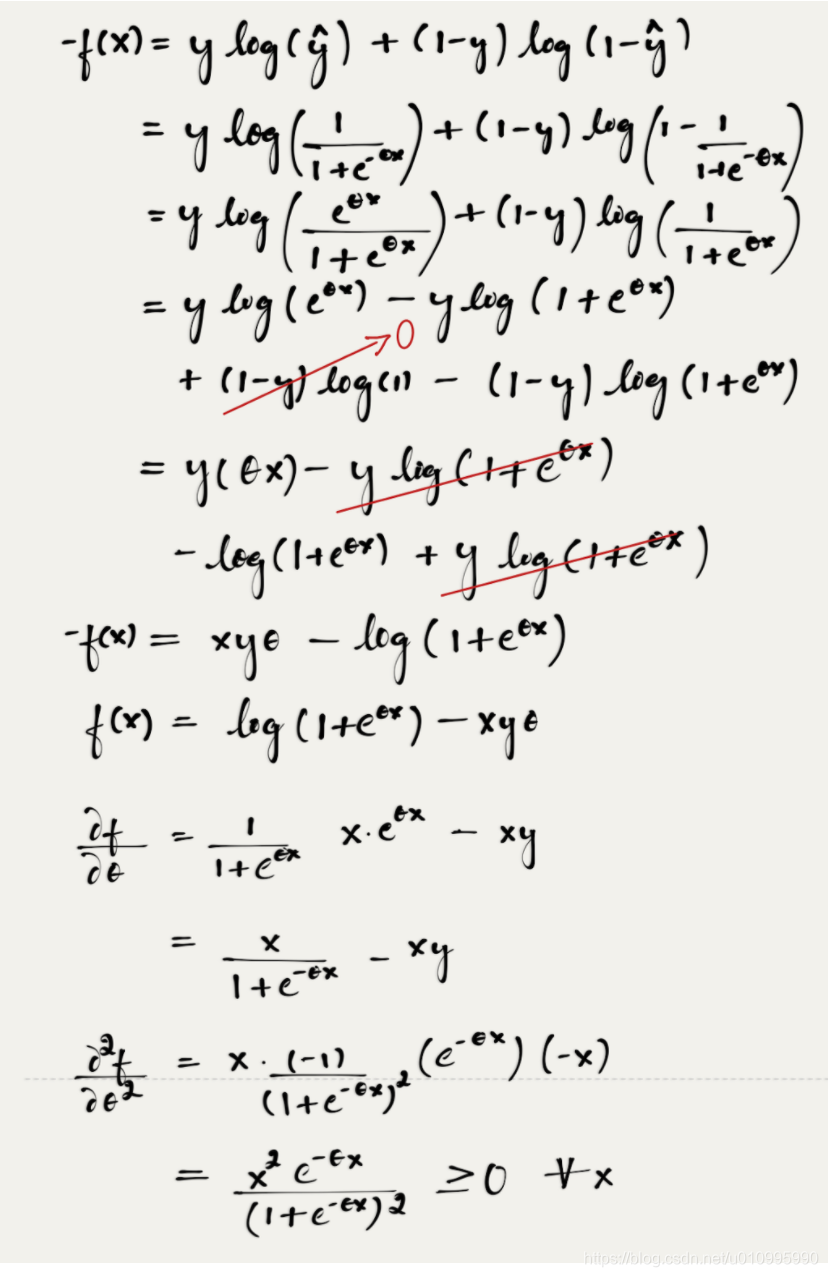 -f(x) = y log(ŷ) + (1-y) log (1-ŷ)
= y log(1/(1+e^{-θx})) + (1-y) log(1 - 1/(1+e^{-θx}))
= y log(e^{θx}/(1+e^{θx})) + (1-y) log(1/(1+e^{θx}))
= y log(e^{θx}) - y log(1+e^{θx})
0
+ (1-y) log(1) - (1-y) log(1+e^{θx})
= y(θx) - y log(1+e^{θx})
- log(1+e^{θx}) + y log(1+e^{θx})
-f(x) = xyθ - log(1+e^{θx})
f(x) = log(1+e^{θx}) - xyθ
∂f/∂θ = 1/(1+e^{θx}) x·e^{θx} - xy
= x/(1+e^{-θx}) - xy
∂²f/∂θ² = x · (-1)/(1+e^{-θx})² (e^{-θx}) (-x)
= x² e^{-θx}/(1+e^{-θx})² ≥ 0 ∀x
https://blog.csdn.net/u010995990